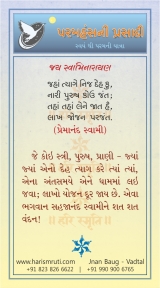 પરમહંસની પ્રસાદી
સ્વયં થી પરમની યાત્રા
જય સ્વામિનારાયણ
જહાં ત્યાગે નિજ દેહકુ,
નારી પુરુષ કોઉ જંત;
તહાં તહાં લેને જાત હૈં,
લાખ યોજન પરજંત.
(પ્રેમાનંદ સ્વામી)
જે કોઇ સ્ત્રી, પુરુષ, પ્રાણી - જ્યાં
જ્યાં એનો દેહ ત્યાગ કરે ત્યાં ત્યાં,
એના અંતસમયે એને ધામમાં લઇ
જવા; લાખો યોજન દૂર જાય છે. એવા
ભગવાન સહજાનંદ સ્વામીને શત શત
વંદન!
॥ હરિ સ્મૃતિ ॥
www.harismruti.com
Jnan Baug - Vadtal
+91 823 826 6622
+91 990 900 6765